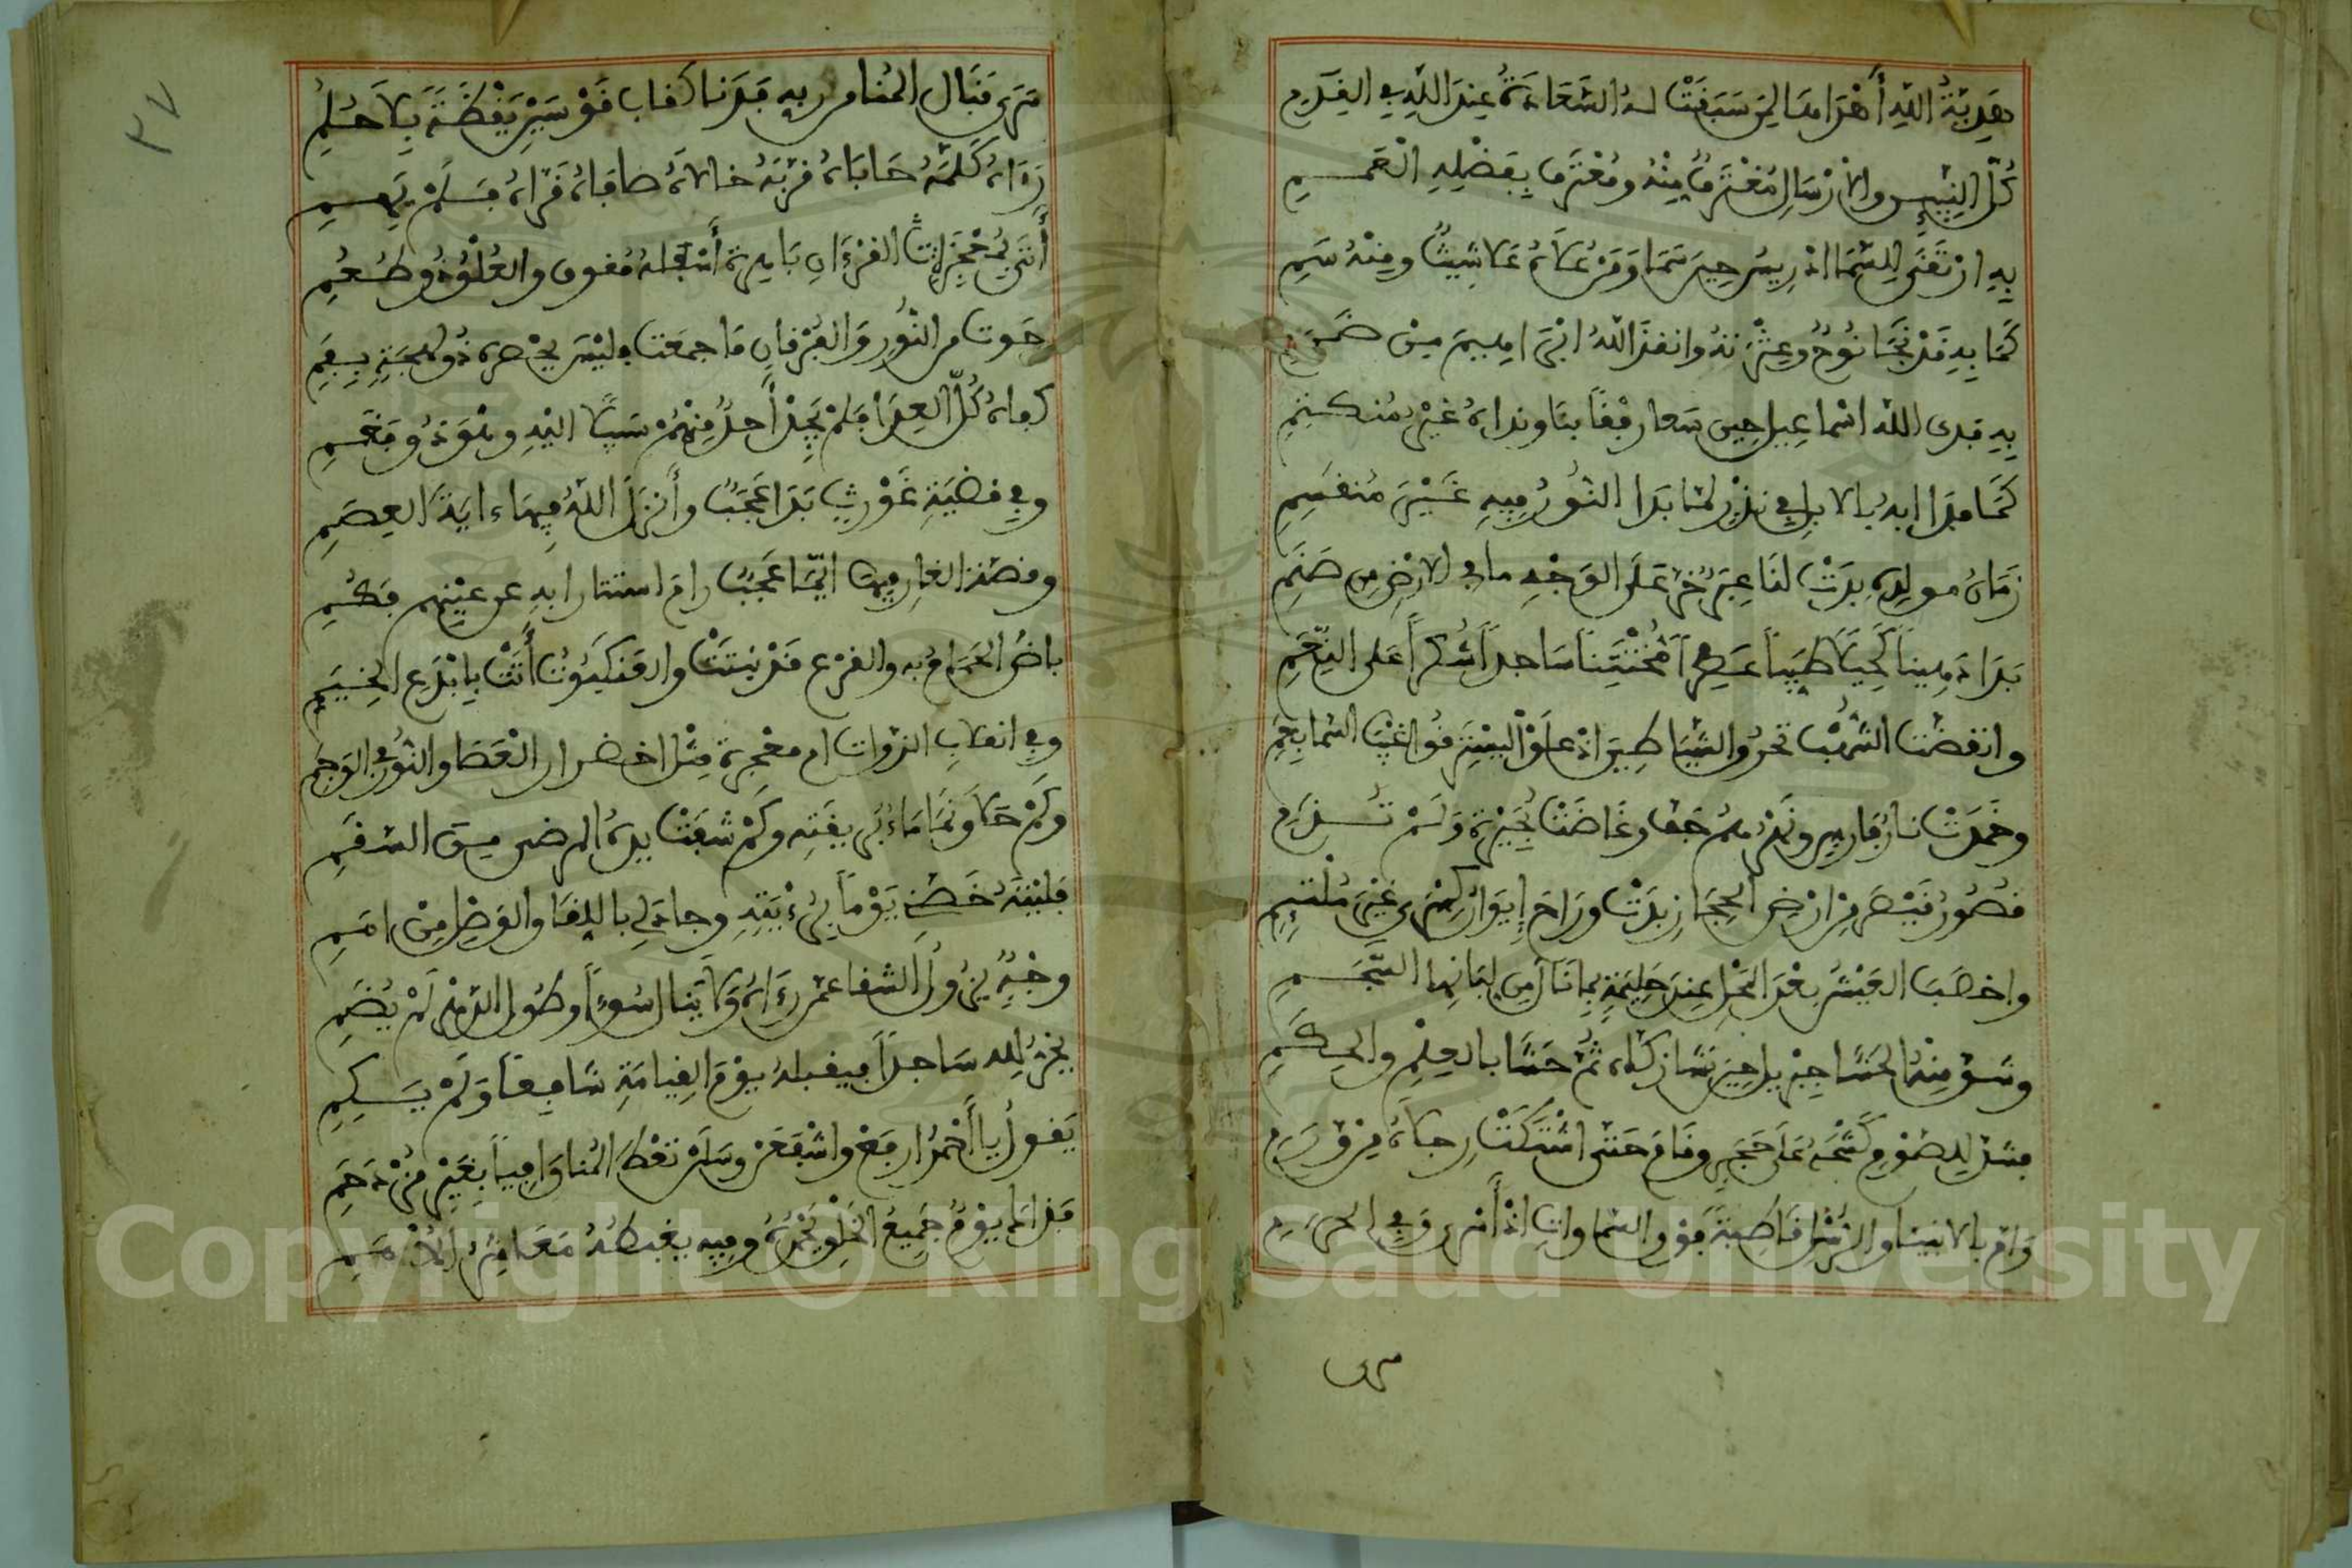 هدية الله أهداها لمن سبقت له السعادة عند الله في القدم
كل النبيين والارسال مغترفا منه ومغترفا بفضله العمم
به ارتقى للسما ادريس حين سما وفر علاه علا شيث ومنه سم
كما به قد نجا نوح وعترته وانقذ الله ابراهيم من ضرم
به فدى الله اسماعيل حين سعا رفقا بنا ونداه غير منكتم
كما فدا ابه بالابل في نذر لما بدا النور فيه غير منقسم
زمان مولده بدت لنا عبر خر على الوجه ما في الارض من صنم
بدا دهينا كحيلا طيبا عطرا مختتنا ساجدا شكرا على النعم
وانقضت الشهب نحو الشياطين اذ علوا ليسترقوا لغيب السما بعم
وخمدت نار فارس ونهرهم جف وغاضت بحيرة ولم تدم
قصور قيصر من ارض الحجاز بدت وراح إيوان كسرى غير ملتئم
واخصب العيش بعد المحل عند حليمة بما نال من لبانها النجم
وشق منه الحشا جبريل حين نشا زكاه ثم حشا بالعلم والحكم
فشد للصوم كشحه على حجر وقام حتى اشتكت رجلاه من ورم
وام بالانبيا والرسل قاطبة فوق السماوات اذ أسرى وفي الحرم
سرى
٣٧
سرى فنال المنا من ربه فدنا كقاب قوسين يقظة بلا حلم
رءاه كلمه حاباه قربه خالاه صافاه قراه فلم يهم
أتى بمعجزات القرءان باهرة أسفله مغدق والعلو ذو طعم
حوت من النور والفرقان ما جمعت فليس يحصره ذو لهجة بفم
كفاه كل العدا فلم يجد أحد منهم سبيلا اليه وهو ذو فخم
وفي قضية غورث بدا عجب وأنزل الله فيها ءاية العصم
وقصة الغار فيها ايما عجب رام استتارا به عن عينهم فكم
باض الحمام به والفرع قد نبتت والعنكبوت أتت بابدع الخيم
وفي انقلاب الذوات ام معجزة مثل اخضرار العصا والنور في الوجم
وكم حلا ونما ماء بريقته وكم شفت يده المرضى من السقم
فليته خصني يوما برؤيته وجاد لي باللقا والوصل من امم
وجه يزول الشقا عمن رءاه ولا ينال سوءا وطول الدهر لم يضم
يخر لله ساجدا فيقبله يوم القيامة شافعا ولم يسم
يقول يا أحمد ارفع واشفعن وسلن تعط المنا وافيا بغير مزدحم
فذاك يوم جميع الخلق يحمده وفيه يغبطه معاشر الامم